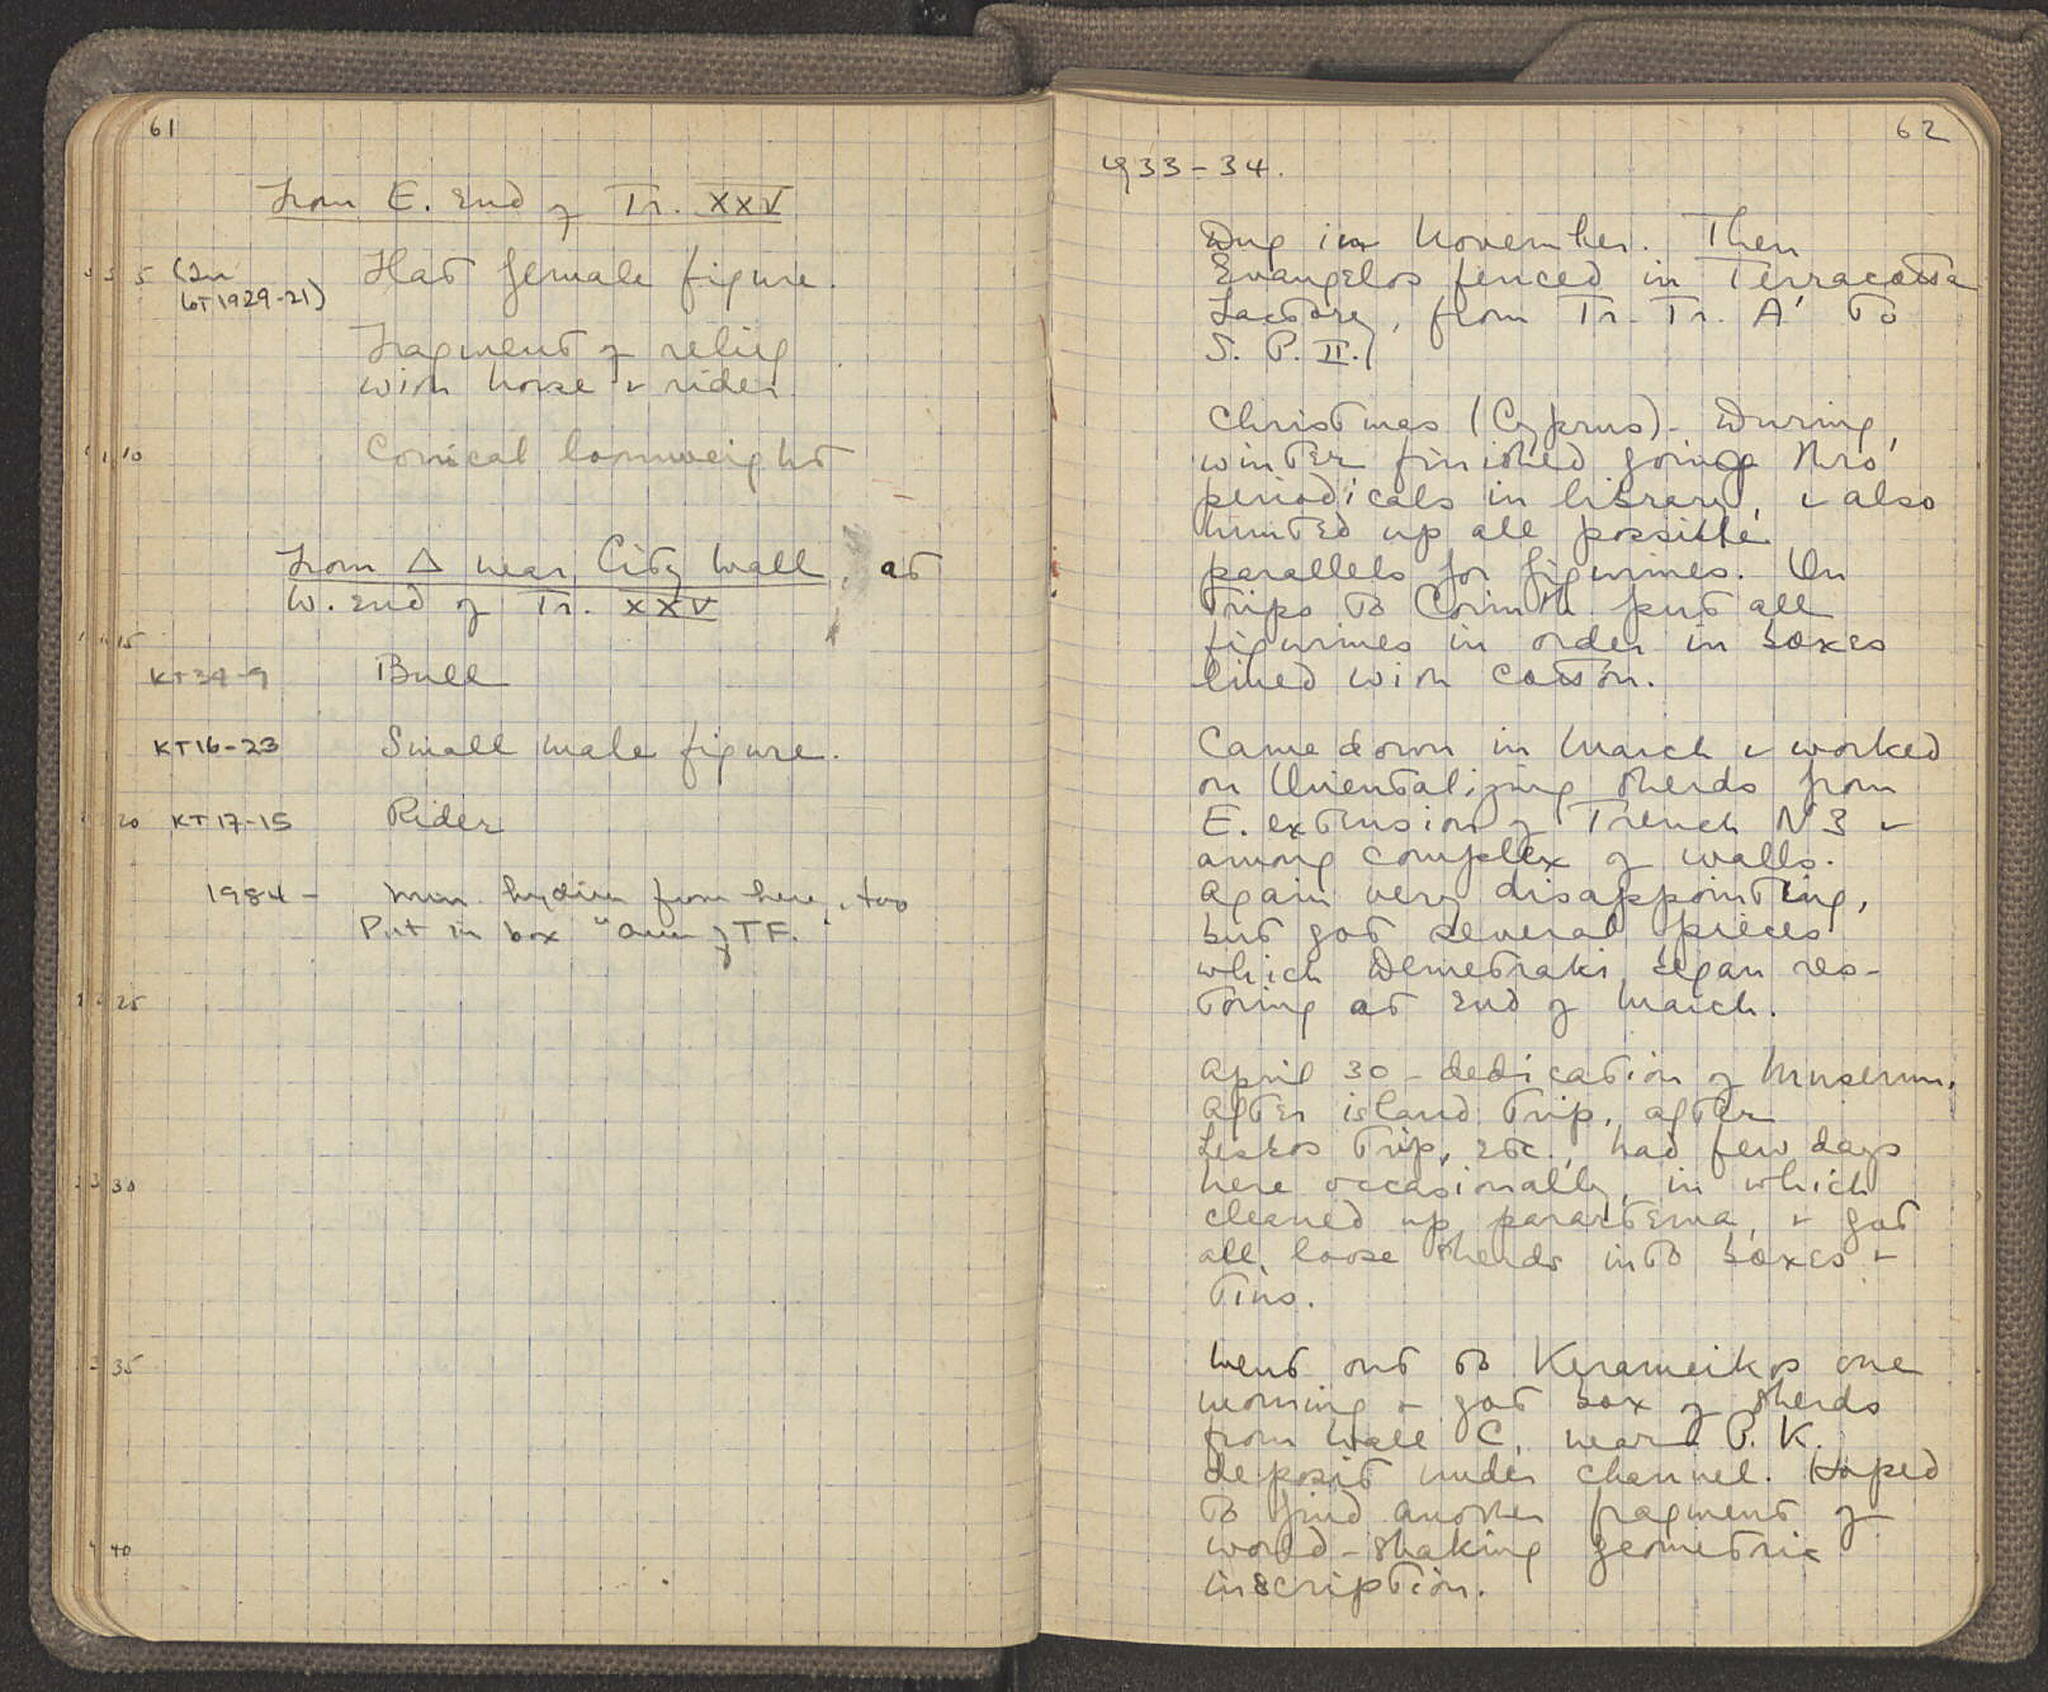 61
From E. End of Tr. XXV
5 (In Flat female figure.
lot 1929-21)
Fragment of relief
with horse & rider
10 Conical loomweight
From Δ near City Wall, at
W. End of Tr. XXV
15
KT34-9 Bull
KT16-23 Small male figure.
20 KT17-15 Rider
1984 - hydria from here, too
Put in box " of TF.
25
30
35
40
62
1933-34.
Dug in November. Then
Evangelos fenced in Terracotta
Factory, from Tr. Tr. A' to
S. P. II.
Christmas (Cyprus). During
winter finished going thro'
periodicals in library, & also
hunted up all possible
parallels for figurines. On
trips to Corinth put all
figurines in order in boxes
lined with cotton.
Came down in March & worked
on Orientalizing sherds from
E. extension of Trench N3 &
among complex of walls.
Again very disappointing,
but got several pieces
which Demetraki began res-
toring at end of March.
April 30 - dedication of Museum.
After island trip, after
Lesbos trip, etc., had few days
here occasionally, in which
cleaned up parartema, & got
all loose sherds into boxes &
tins.
Went out to Kerameikos one
morning & got box of sherds
from Wall C, near P. K.
deposit under channel. Hoped
to find another fragment of
world-shaking geometric
inscription.